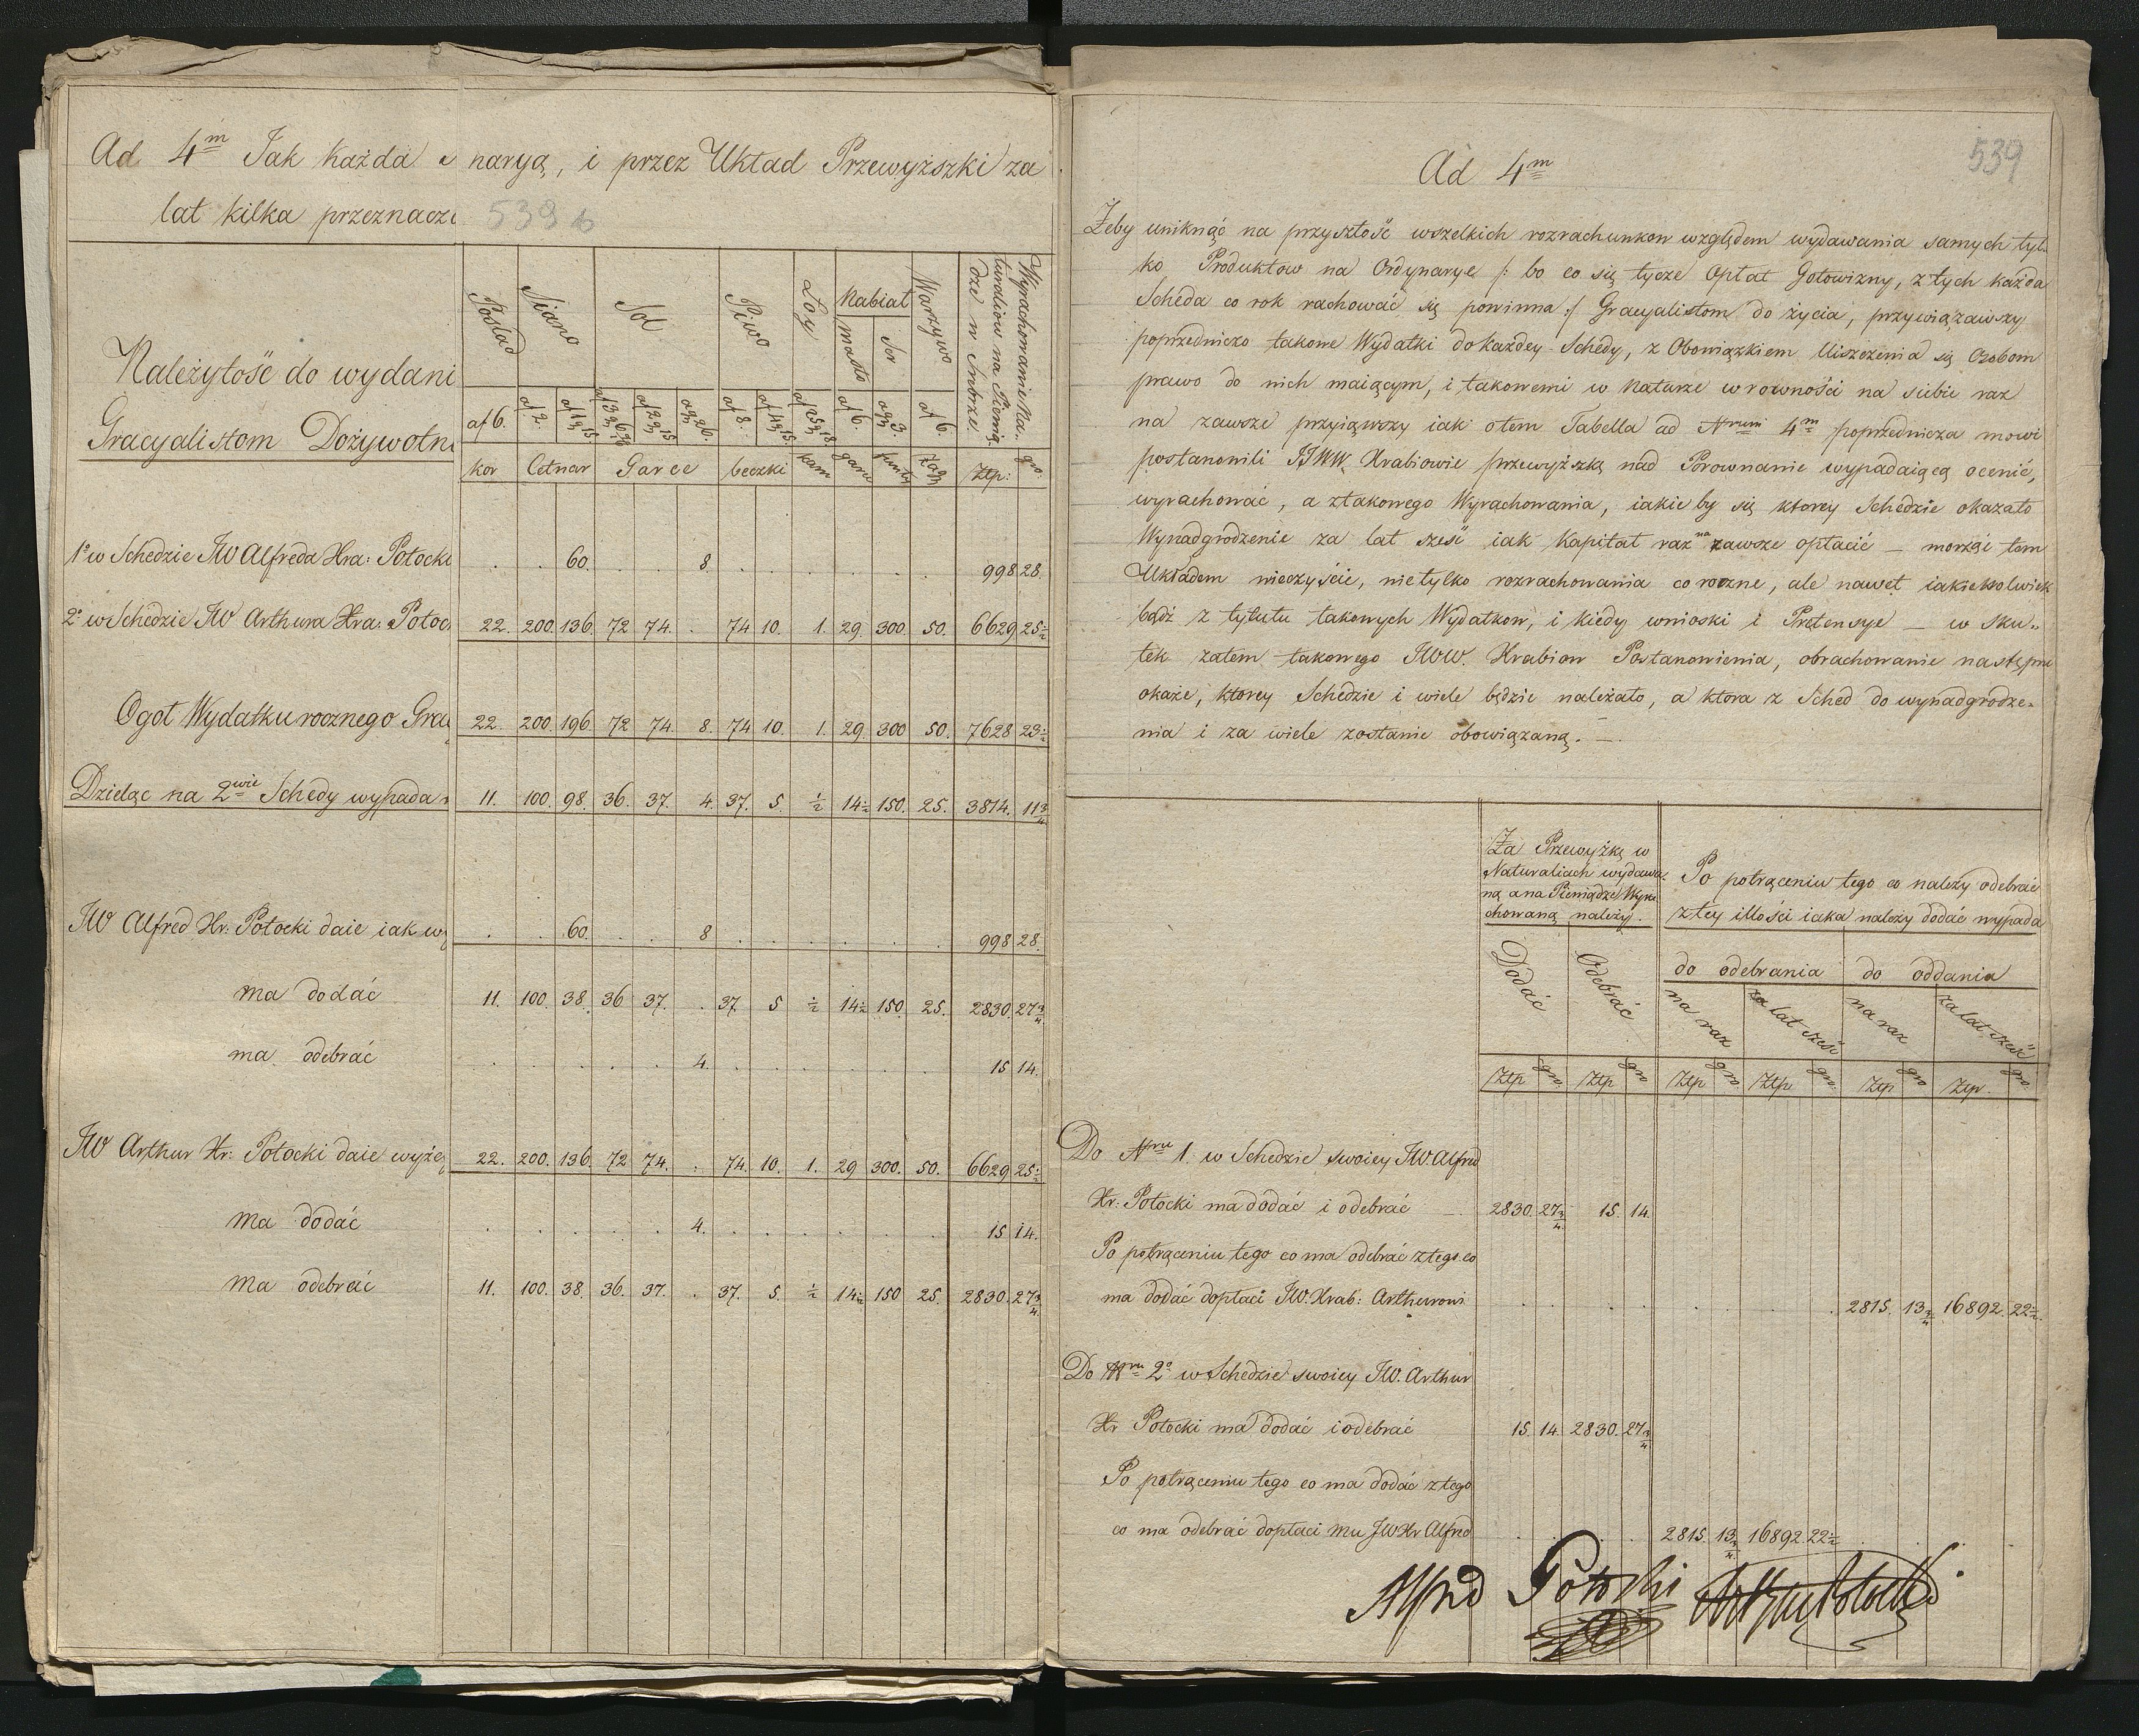 Ad 4m Jak każda
naryą, i przez Układ Przewyższki za
lat kilka przeznacz
539 b
Należytość do wydani
Gracyalistom Dożywotn
Poślad Siano Sol Piwo Loy Nabiał Warzywo Wyrachowanie Na„
turaliow na Pienią„
dze w Srebrze.
masło Ser
af 6. af 2. af 8. af 6. af 6.
kor Cetnar Garce beczki kam garce funty Zag Złp: gro:
1o w Schedzie JW Alfreda Hra: Potocki . . 60. . . 8. . . . . . . 998 28.
2o w Schedzie JW Arthura Hra: Potoc 22. 200. 136. 72 74. . 74 10. 1. 29. 300. 50. 6629 25½
Ogoł Wydatku rocznego Gra 22. 200. 196. 72 74. 8. 74 10. 1. 29. 300 50. 7628 23½
Dzieląc na 2wie Schedy wypada 11. 100. 98. 36. 37. 4. 37. 5. ½ 14½ 150. 25. 3814. 11¾
JW Alfred Hr: Potocki daie iak wy . . 60. . . 8 . . . . . . 998 28.
ma dodać 11. 100. 38. 36 37. . 37. 5 ½ 14½ 150. 25. 2830. 27¾
ma odebrać . . . . . 4. . . . . . . 15 14.
JW Arthur Hr: Potocki daie wyże 22. 200. 136. 72 74. . 74. 10. 1. 29 300. 50. 6629 25½
ma dodać . . . . . 4. . . . . . . 15 14.
ma odebrać 11. 100. 38. 36. 37. . 37. 5. ½ 14½ 150 25. 2830. 27¾
539
Ad 4m
Żeby uniknąć na przyszłość wszelkich rozrachunkow względem wydawania samych tyl„
ko Produktow na Ordynarye /: bo co się tycze Opłat Gotowizny, z tych każda
Scheda co rok rachować się powinna :/ Gracyalistom do życia, przywiązawszy
poprzedniczo takowe Wydatki do każdey Schedy, z Obowiązkiem Uiszczenia się Osobom
prawo do nich maiącym, i takowemi w Naturze w rowności na siebie raz
na zawsze przyiąwszy iak o tem Tabella ad Nrum 4m poprzednicza mowi
postanowili JJWW. Hrabiowie przewyżką nad Porownanie wypadaiącą ocenić,
wyrachować, a z takowego Wyrachowania, iakie by się ktorey Schedzie okazało
Wynadgrodzenie za lat sześć iak Kapitał raz na zawsze opłacić — morząc tem
Układem nie tylko rozrachowania coroczne, ale nawet iakiekolwiek
bądź z tytułu takowych Wydatkow, i kiedy wnioski i Pretensye — w sku„
tek zatem takowego JWW. Hrabiow Postanowienia, obrachowanie następne
okaże, ktorey Schedzie i wiele będzie należało, a ktora z Sched do wynadgrodze„
nia i za wiele zostanie obowiązaną. —
Za Przewyżkę w
Naturaliach wydawa„
ną a na Pieniądze Wyra
chowaną należy.
Po potrąceniu tego co należy odebrać
z tey illości iaka należy dodać wypada
do odebrania do oddania
Dodać Odebrać na raz za lat sześć na raz za lat sześć
Złp gro. Złp gro Złp gro. Złp gro. Złp gro Złp. gro.
Do Nru 1. w Schedzie swoiey JW. Alfred
Hr: Potocki ma dodać i odebrać — 2830. 27¾ 15. 14.
Po potrąceniu tego co ma odebrać z tego co
ma dodać dopłaci JW. Hrab: Arthurowi . . . . . . . . 2815. 13¾ 16892. 22½
Do Nru 2o w Schedzie swoiey JW. Arthur
Hr Potocki ma dodać i odebrać 15. 14. 2830. 27¾
Po potrąceniu tego co ma dodać z tego
co ma odebrać dopłaci mu JW Hr Alfred . . . . 2815. 13¾ 16892. 22½ . . . .
Alfred Potocki Arthur Potocki